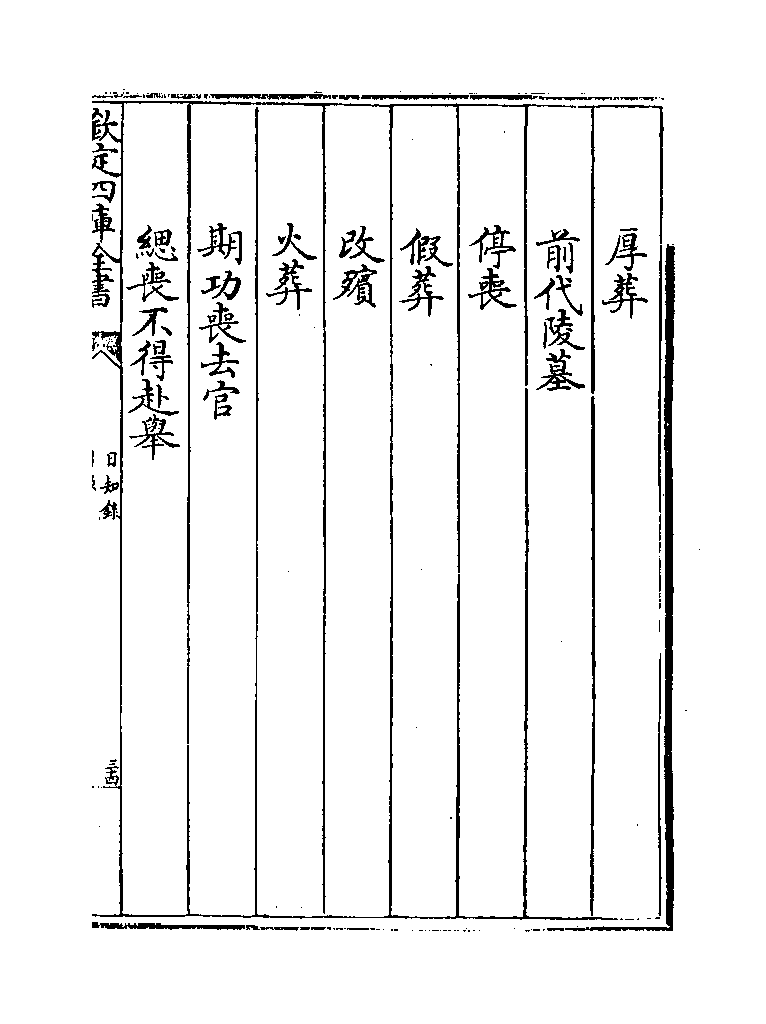 厚葬
前代陵墓
停喪
假葬
改殯
火葬
期功喪去官
緦喪不得赴舉
欽定四庫全書
日知錄
三十四